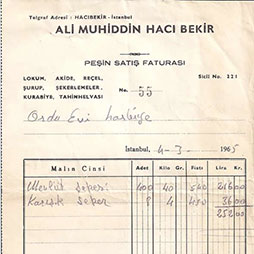 Telgraf Adresi : HACIBEKİR - İstanbul
ALİ MUHİDDİN HACI BEKİR
PEŞİN SATIŞ FATURASI
LOKUM, AKİDE, REÇEL,
ŞURUP, ŞEKERLEMELER,
KURABİYE, TAHİNHELVASI
No. 55
Sicil No. 321
Ordu Evi harbiye
İstanbul, 4-3-1965
Malın Cinsi Adet Kilo Gr. Fiatı Lira Kr.
Mevlüt şekeri 400 40 540 216 00
Karışık şeker 8 4 36 00
252 00